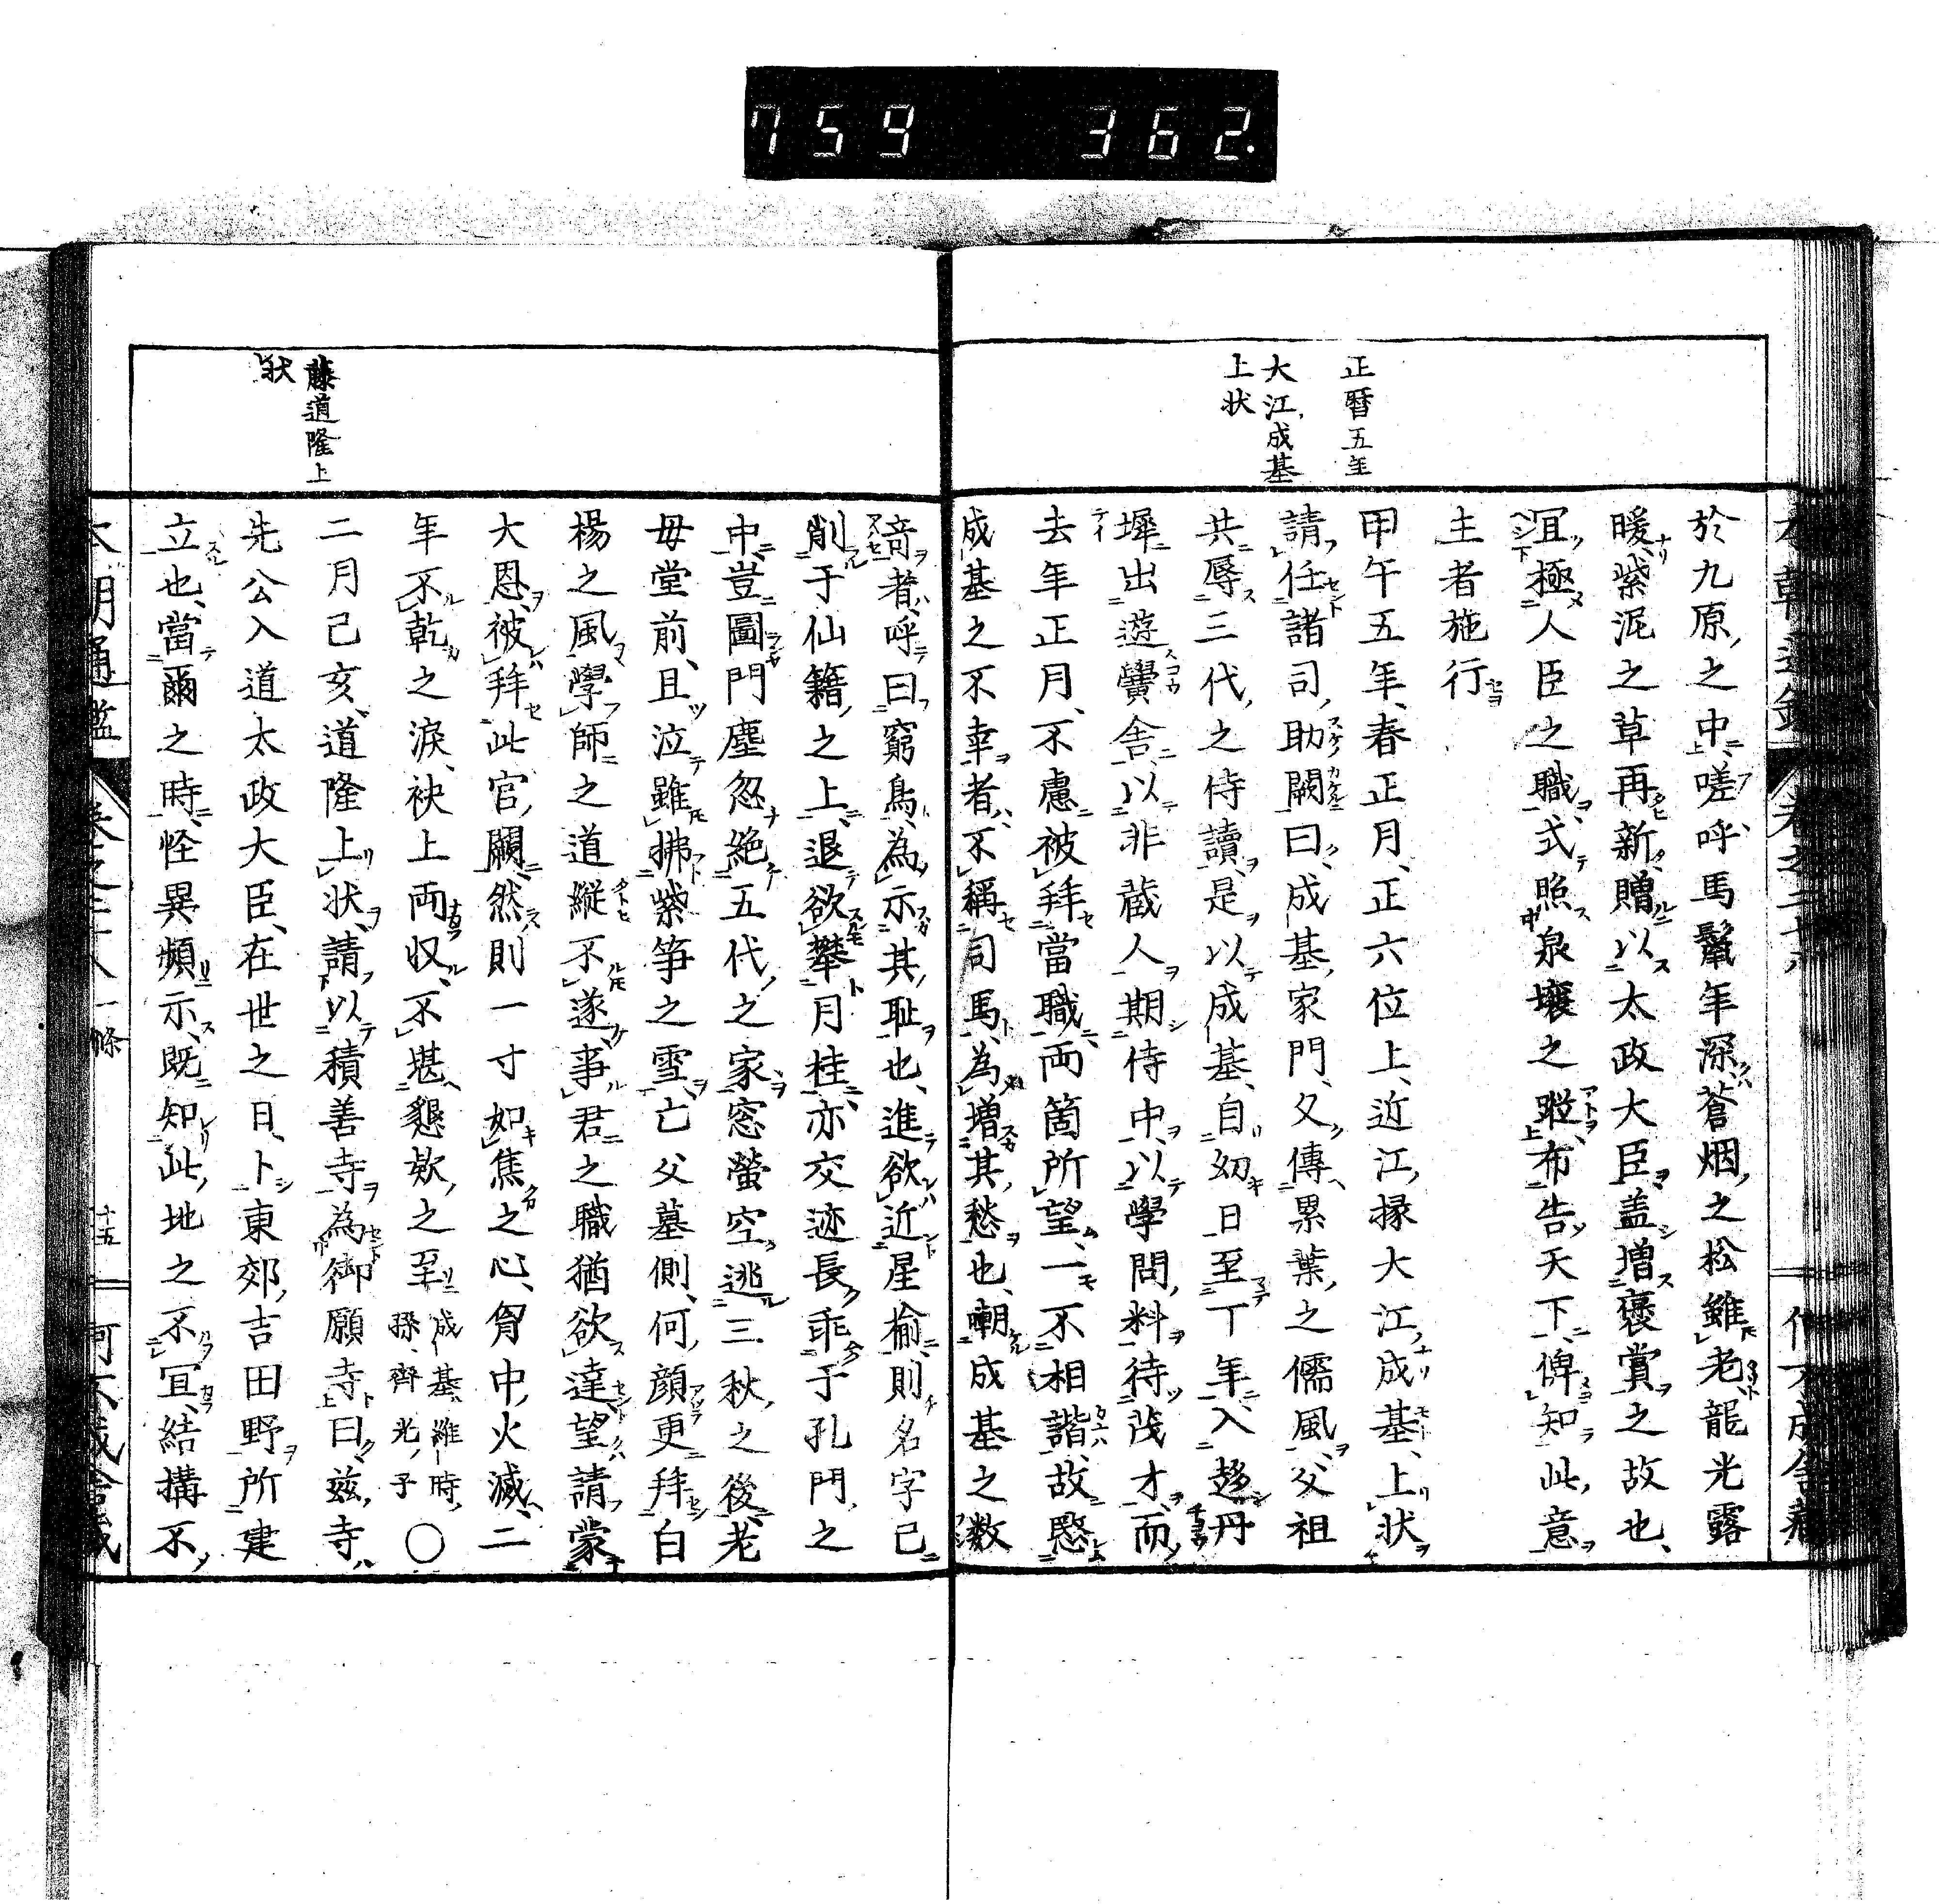 759 362.
正曆五年
大江成基
上状
於九原之中嗟呼馬鬣年深蒼烟之松雖老龍光露
暖紫泥之草再新贈以太政大臣盖増褒賞之故也
冝極人臣之職式照泉壤之蹤布告天下俾知此意
主者施行
甲午五年春正月正六位上近江掾大江成基上状
請任諸司助闕曰成基家門久傳累葉之儒風父祖
共辱三代之侍讀是以成基自幼日至丁年入趍丹
墀出遊黌舎以非蔵人期侍中以學問料待茂才而
去年正月不慮被拜當職両箇所望一不相諧故愍
成基之不幸者不稱司馬為増其愁也嘲成基之数
竒者呼曰窮鳥為示其耻也進欲近星楡則名字已
削于仙籍之上退欲攀月桂亦交迹長乖于孔門之
中豈圖門塵忽絶五代之家窓螢空逃三秋之後老
母堂前且泣雖拂紫笋之雪亡父墓側何顔更拜白
楊之風學師之道縦不遂事君之職猶欲達望請蒙
大恩被拜此官闕然則一寸如焦之心胷中火滅二
年不乾之涙袂上雨収不堪懇欵之至成基維時孫齊光子〇
二月己亥道隆上状請以積善寺為御願寺曰兹寺
先公入道太政大臣在世之日卜東郊吉田野所建
立也當爾之時怪異頻示既知此地之不冝結構不
藤道隆上
状
本朝通鑑 卷之二十八 一條 十五